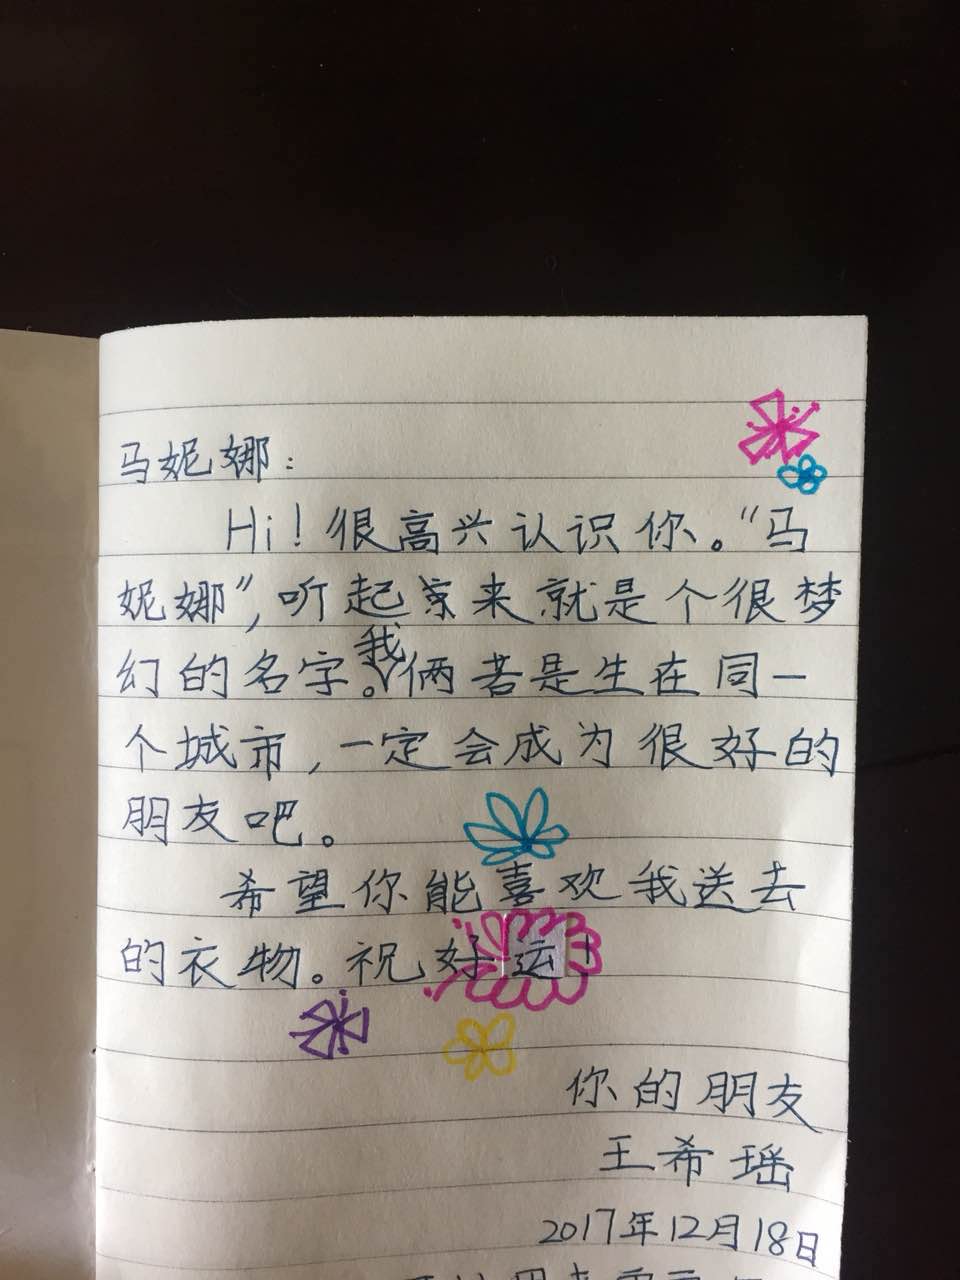 马妮娜：
Hi！很高兴认识你。“马
妮娜”，听起来就是个很梦
幻的名字。我俩若是生在同一
个城市，一定会成为很好的
朋友吧。
希望你能喜欢我送去
的衣物。祝好运！
你的朋友
王希瑶
2017年12月18日